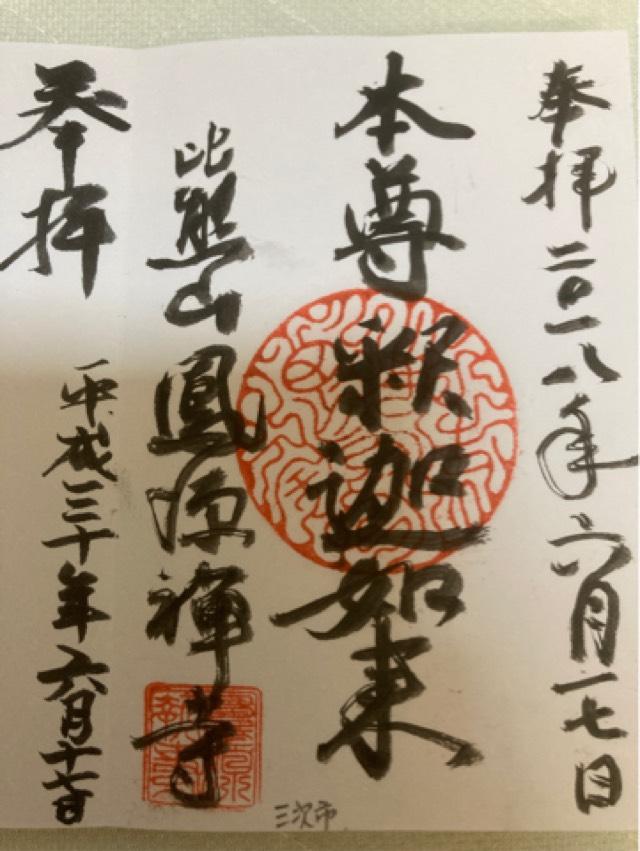 奉拝二〇一八年六月一七日
本尊釈迦如来
比熊山鳳源禅寺
三次市
奉拝
平成三十年六月十七日